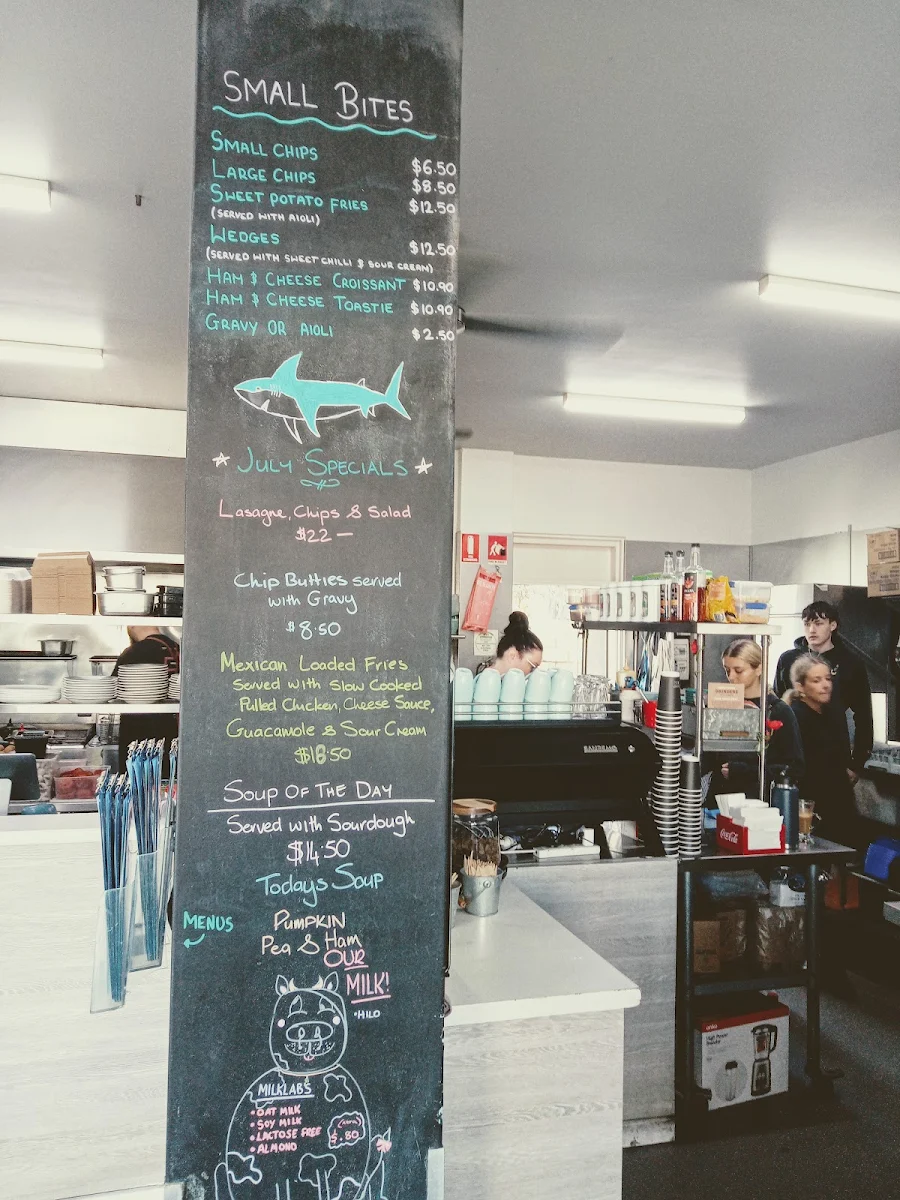 SMALL BITES
SMALL CHIPS $6.50
LARGE CHIPS $8.50
SWEET POTATO FRIES $12.50
(SERVED WITH AIOLI)
WEDGES $12.50
(SERVED WITH SWEET CHILLI & SOUR CREAM)
HAM & CHEESE CROISSANT $10.90
HAM & CHEESE TOASTIE $10.90
GRAVY OR AIOLI $2.50
JULY SPECIALS
Lasagne, Chips & Salad
$22 —
Chip Butties served
with Gravy
$8.50
Mexican Loaded Fries
Served with Slow Cooked
Pulled Chicken, Cheese Sauce,
Guacamole & Sour Cream
$18.50
SOUP OF THE DAY
Served with Sourdough
$14.50
Todays Soup
MENUS
PUMPKIN
Pea & Ham
OUR
MILK!
•HILO
MILKLABS
•OAT MILK
•SOY MILK
•LACTOSE FREE
•ALMOND
$.80
SANREMO
Coca-Cola
anko
High Power
Blender